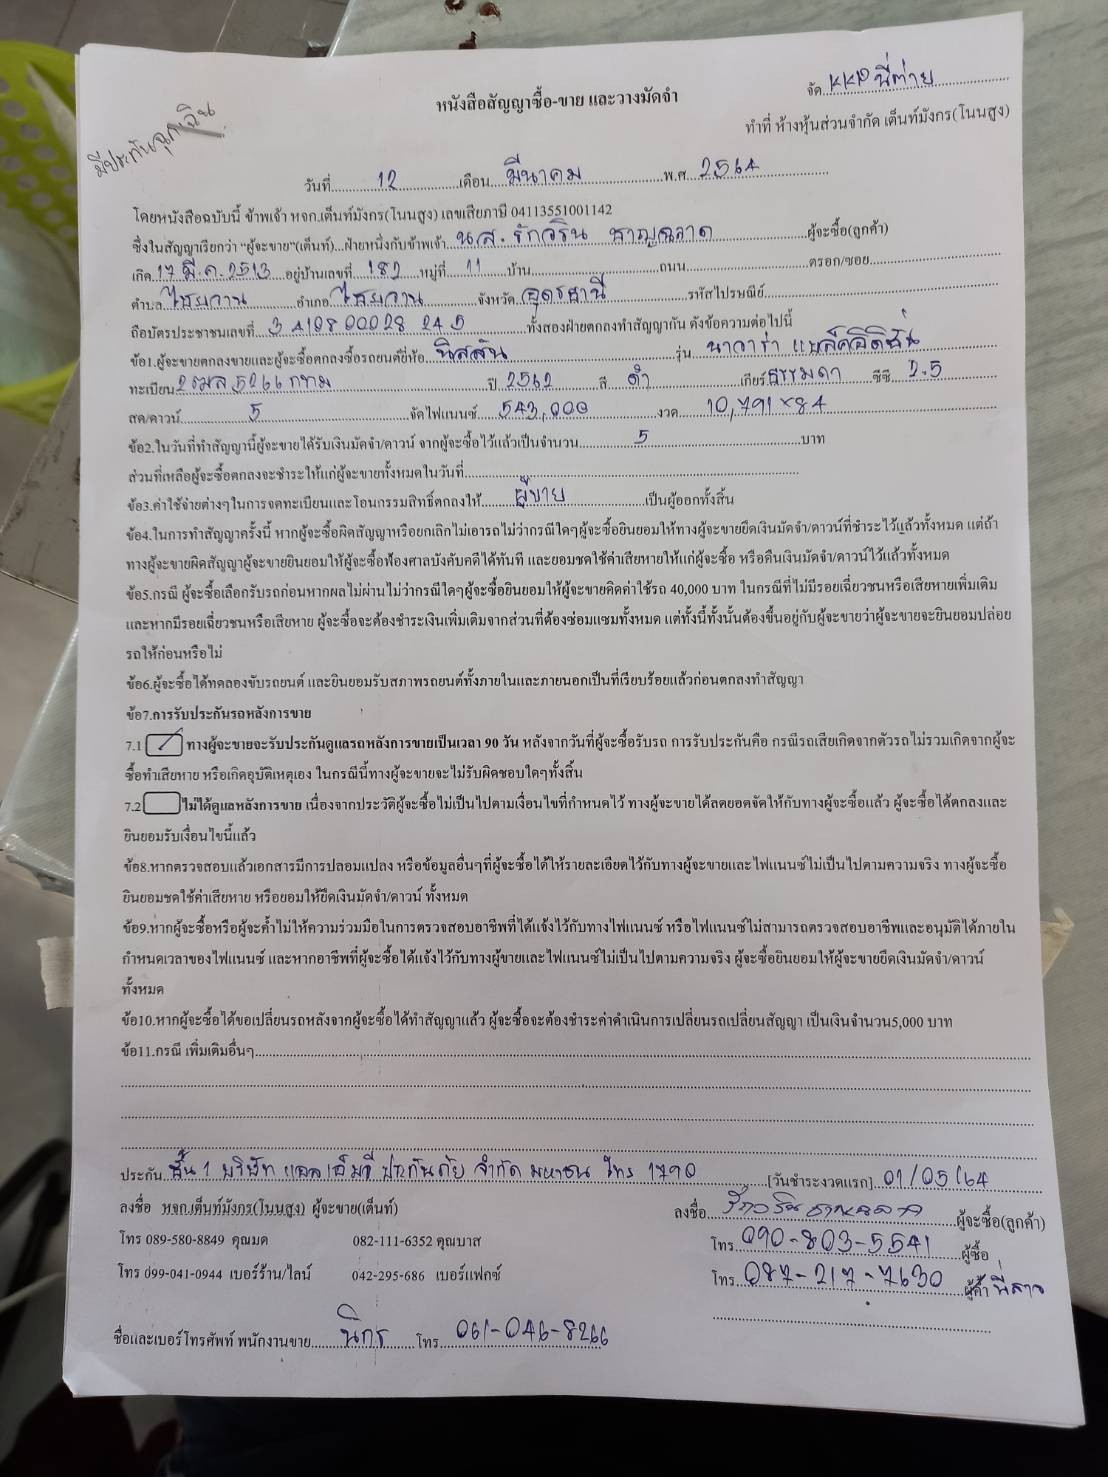 จัด KKP พี่ต่าย
หนังสือสัญญาซื้อ-ขาย และวางมัดจำ
มีประกันฉุกเฉิน
ทำที่ ห้างหุ้นส่วนจำกัด เต็นท์มังกร(โนนสูง)
วันที่ 12 เดือน มีนาคม พ.ศ. 2564
โดยหนังสือฉบับนี้ ข้าพเจ้า หจก.เต็นท์มังกร(โนนสูง) เลขเสียภาษี 04113551001142
ซึ่งในสัญญาเรียกว่า "ผู้จะขาย"(เต็นท์)...ฝ่ายหนึ่งกับข้าพเจ้า นส. รักวริน ชาญฉลาด ผู้จะซื้อ(ลูกค้า)
เกิด 17 มี.ค. 2513 อยู่บ้านเลขที่ 182 หมู่ที่ 11 บ้าน ถนน ตรอก/ซอย
ตำบล ไชยวาน อำเภอ ไชยวาน จังหวัด อุดรธานี รหัสไปรษณีย์
ถือบัตรประชาชนเลขที่ 3 410800028 245 ทั้งสองฝ่ายตกลงทำสัญญากัน ดังข้อความต่อไปนี้
ข้อ1.ผู้จะขายตกลงขายและผู้จะซื้อตกลงซื้อรถยนต์ยี่ห้อ นิสสัน รุ่น นาวาร่า แบล็คอิดิชั่น
ทะเบียน 2ฒล 5266 กทม ปี 2562 สี ดำ เกียร์ ธรรมดา ซีซี 2.5
สด/ดาวน์ 5 จัดไฟแนนซ์ 543,000 งวด 10,791×84
ข้อ2.ในวันที่ทำสัญญานี้ผู้จะขายได้รับเงินมัดจำ/ดาวน์ จากผู้จะซื้อไว้แล้วเป็นจำนวน 5 บาท
ส่วนที่เหลือผู้จะซื้อตกลงจะชำระให้แก่ผู้จะขายทั้งหมดในวันที่
ข้อ3.ค่าใช้จ่ายต่างๆในการจดทะเบียนและโอนกรรมสิทธิ์ตกลงให้ ผู้ขาย เป็นผู้ออกทั้งสิ้น
ข้อ4.ในการทำสัญญาครั้งนี้ หากผู้จะซื้อผิดสัญญาหรือยกเลิกไม่เอารถไม่ว่ากรณีใดๆผู้จะซื้อยินยอมให้ทางผู้จะขายยึดเงินมัดจำ/ดาวน์ที่ชำระไว้แล้วทั้งหมด แต่ถ้า
ทางผู้จะขายผิดสัญญาผู้จะขายยินยอมให้ผู้จะซื้อฟ้องศาลบังคับคดีได้ทันที และยอมชดใช้ค่าเสียหายให้แก่ผู้จะซื้อ หรือคืนเงินมัดจำ/ดาวน์ไว้แล้วทั้งหมด
ข้อ5.กรณี ผู้จะซื้อเลือกรับรถก่อนหากผลไม่ผ่านไม่ว่ากรณีใดๆผู้จะซื้อยินยอมให้ผู้จะขายคิดค่าใช้รถ 40,000 บาท ในกรณีที่ไม่มีรอยเฉี่ยวชนหรือเสียหายเพิ่มเติม
และหากมีรอยเฉี่ยวชนหรือเสียหาย ผู้จะซื้อจะต้องชำระเงินเพิ่มเติมจากส่วนที่ต้องซ่อมแซมทั้งหมด แต่ทั้งนี้ทั้งนั้นต้องขึ้นอยู่กับผู้จะขายว่าผู้จะขายจะยินยอมปล่อย
รถให้ก่อนหรือไม่
ข้อ6.ผู้จะซื้อได้ทดลองขับรถยนต์ และยินยอมรับสภาพรถยนต์ทั้งภายในและภายนอกเป็นที่เรียบร้อยแล้วก่อนตกลงทำสัญญา
ข้อ7.การรับประกันรถหลังการขาย
7.1 ทางผู้จะขายจะรับประกันดูแลรถหลังการขายเป็นเวลา 90 วัน หลังจากวันที่ผู้จะซื้อรับรถ การรับประกันคือ กรณีรถเสียเกิดจากตัวรถไม่รวมเกิดจากผู้จะ
ซื้อทำเสียหาย หรือเกิดอุบัติเหตุเอง ในกรณีนี้ทางผู้จะขายจะไม่รับผิดชอบใดๆทั้งสิ้น
7.2 ไม่ได้ดูแลหลังการขาย เนื่องจากประวัติผู้จะซื้อไม่เป็นไปตามเงื่อนไขที่กำหนดไว้ ทางผู้จะขายได้ลดยอดจัดให้กับทางผู้จะซื้อแล้ว ผู้จะซื้อได้ตกลงและ
ยินยอมรับเงื่อนไขนี้แล้ว
ข้อ8.หากตรวจสอบแล้วเอกสารมีการปลอมแปลง หรือข้อมูลอื่นๆที่ผู้จะซื้อได้ให้รายละเอียดไว้กับทางผู้จะขายและไฟแนนซ์ไม่เป็นไปตามความจริง ทางผู้จะซื้อ
ยินยอมชดใช้ค่าเสียหาย หรือยอมให้ยึดเงินมัดจำ/ดาวน์ ทั้งหมด
ข้อ9.หากผู้จะซื้อหรือผู้จะค้ำไม่ให้ความร่วมมือในการตรวจสอบอาชีพที่ได้แจ้งไว้กับทางไฟแนนซ์ หรือไฟแนนซ์ไม่สามารถตรวจสอบอาชีพและอนุมัติได้ภายใน
กำหนดเวลาของไฟแนนซ์ และหากอาชีพที่ผู้จะซื้อได้แจ้งไว้กับทางผู้ขายและไฟแนนซ์ไม่เป็นไปตามความจริง ผู้จะซื้อยินยอมให้ผู้จะขายยึดเงินมัดจำ/ดาวน์
ทั้งหมด
ข้อ10.หากผู้จะซื้อได้ขอเปลี่ยนรถหลังจากผู้จะซื้อได้ทำสัญญาแล้ว ผู้จะซื้อจะต้องชำระค่าดำเนินการเปลี่ยนรถเปลี่ยนสัญญา เป็นเงินจำนวน5,000 บาท
ข้อ11.กรณี เพิ่มเติมอื่นๆ
ประกัน ชั้น 1 บริษัท แอลเอ็มจี ประกันภัย จำกัด มหาชน โทร 1790 [วันชำระงวดแรก] 01/05/64
ลงชื่อ หจก.เต็นท์มังกร(โนนสูง) ผู้จะขาย(เต็นท์) ลงชื่อ รักวริน ชาญฉลาด ผู้จะซื้อ(ลูกค้า)
โทร 089-580-8849 คุณมด 082-111-6352 คุณบาส โทร 090-803-5541 ผู้ซื้อ
โทร 099-041-0944 เบอร์ร้าน/ไลน์ 042-295-686 เบอร์แฟกซ์ โทร 087-217-7630 ผู้ค้ำ พี่สาว
ชื่อและเบอร์โทรศัพท์ พนักงานขาย นิกร โทร 061-046-8266